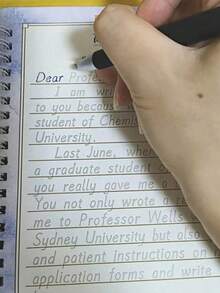 Dear Profe
I am wri
to you becaus
student of Chemis
University.
Last June, whe
a graduate student
you really gave me a
You not only wrote a
me to Professor Wells
Sydney University but also
and patient instructions on
application forms and write